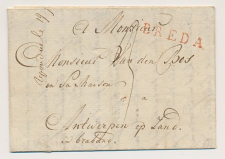 a Monsieur
BREDA
Monsieur Van den Bos
en sa Maison
5
Antwerpen op Zand
in braband